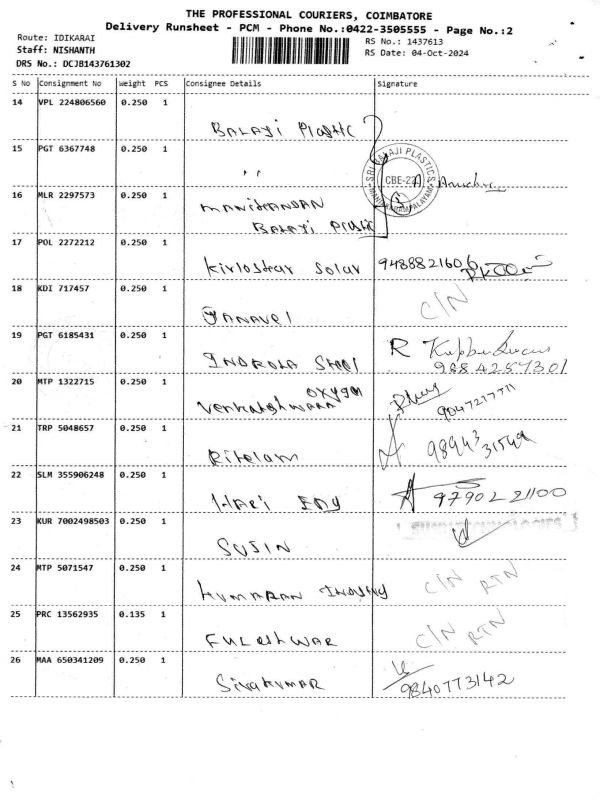 THE PROFESSIONAL COURIERS, COIMBATORE
Delivery Runsheet - PCM - Phone No.:0422-3505555 - Page No.:2
Route: IDIKARAI
RS No.: 1437613
Staff: NISHANTH
RS Date: 04-Oct-2024
DRS No.: DCJB143761302
S No Consignment No Weight PCS Consignee Details Signature
14 VPL 224806560 0.250 1
BALAJI Plastic
15 PGT 6367748 0.250 1
,,
SRI BALAJI PLASTICS
CBE-22
16 MLR 2297573 0.250 1
MANIKANDAN
BALAJI Plastic
17 POL 2272212 0.250 1
Kirloskar Solar 9488821606
18 KDI 717457 0.250 1
JANAVEL C/N
19 PGT 6185431 0.250 1
R
INDROLA Steel 9884257301
20 MTP 1322715 0.250 1
OXYGEN
9047217711
21 TRP 5048657 0.250 1
Ritelam
22 SLM 355906248 0.250 1
HARI ENG 9790221100
23 KUR 7002498503 0.250 1
SUJIN
24 MTP 5071547 0.250 1
KUMARAN C/N RTN
25 PRC 13562935 0.135 1
FULESHWAR C/N RTN
26 MAA 650341209 0.250 1
Sivakumar 9840773142